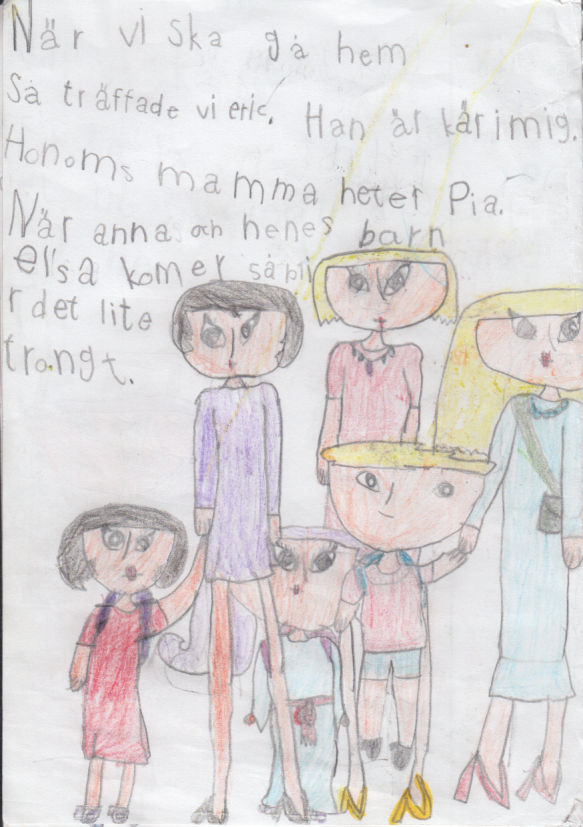 När vi ska gå hem
Så träffade vi eric. Han är kär i mig.
Honoms mamma heter Pia.
När anna och henes barn
elsa komer så bli
r det lite
trongt.